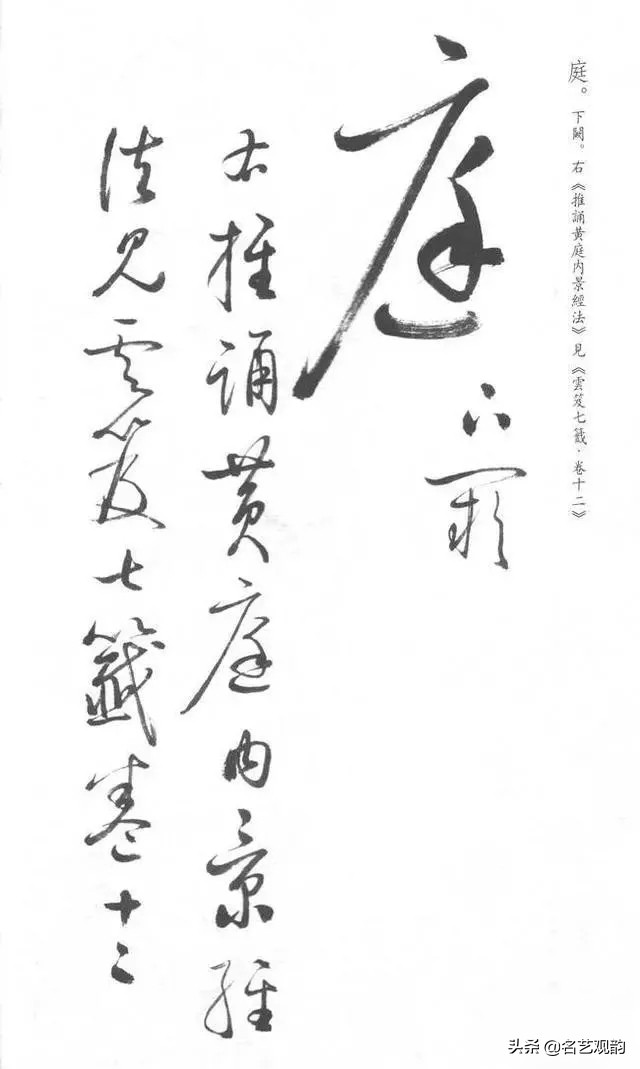 庭。下闕。右《推誦黃庭内景經法》見《雲笈七籤·卷十二》
庭
下闕
右推誦黃庭内景經
法見雲笈七籤卷十二
头条 @名艺观韵